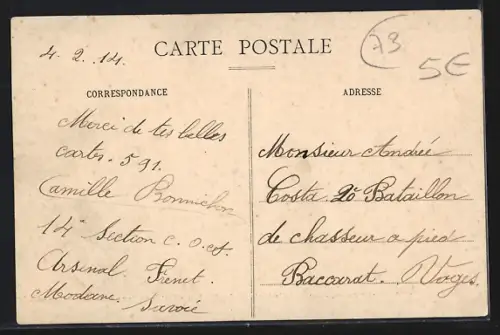 4. 2. 14.
CARTE POSTALE
73
5€
CORRESPONDANCE
Merci de tes belles
cartes. 591.
Camille Bonnichon
14e Section C. O. et
Arsenal.
Modane. Savoie
ADRESSE
Monsieur André
Costa 20 Bataillon
de chasseur a pied
Baccarat. Vosges.